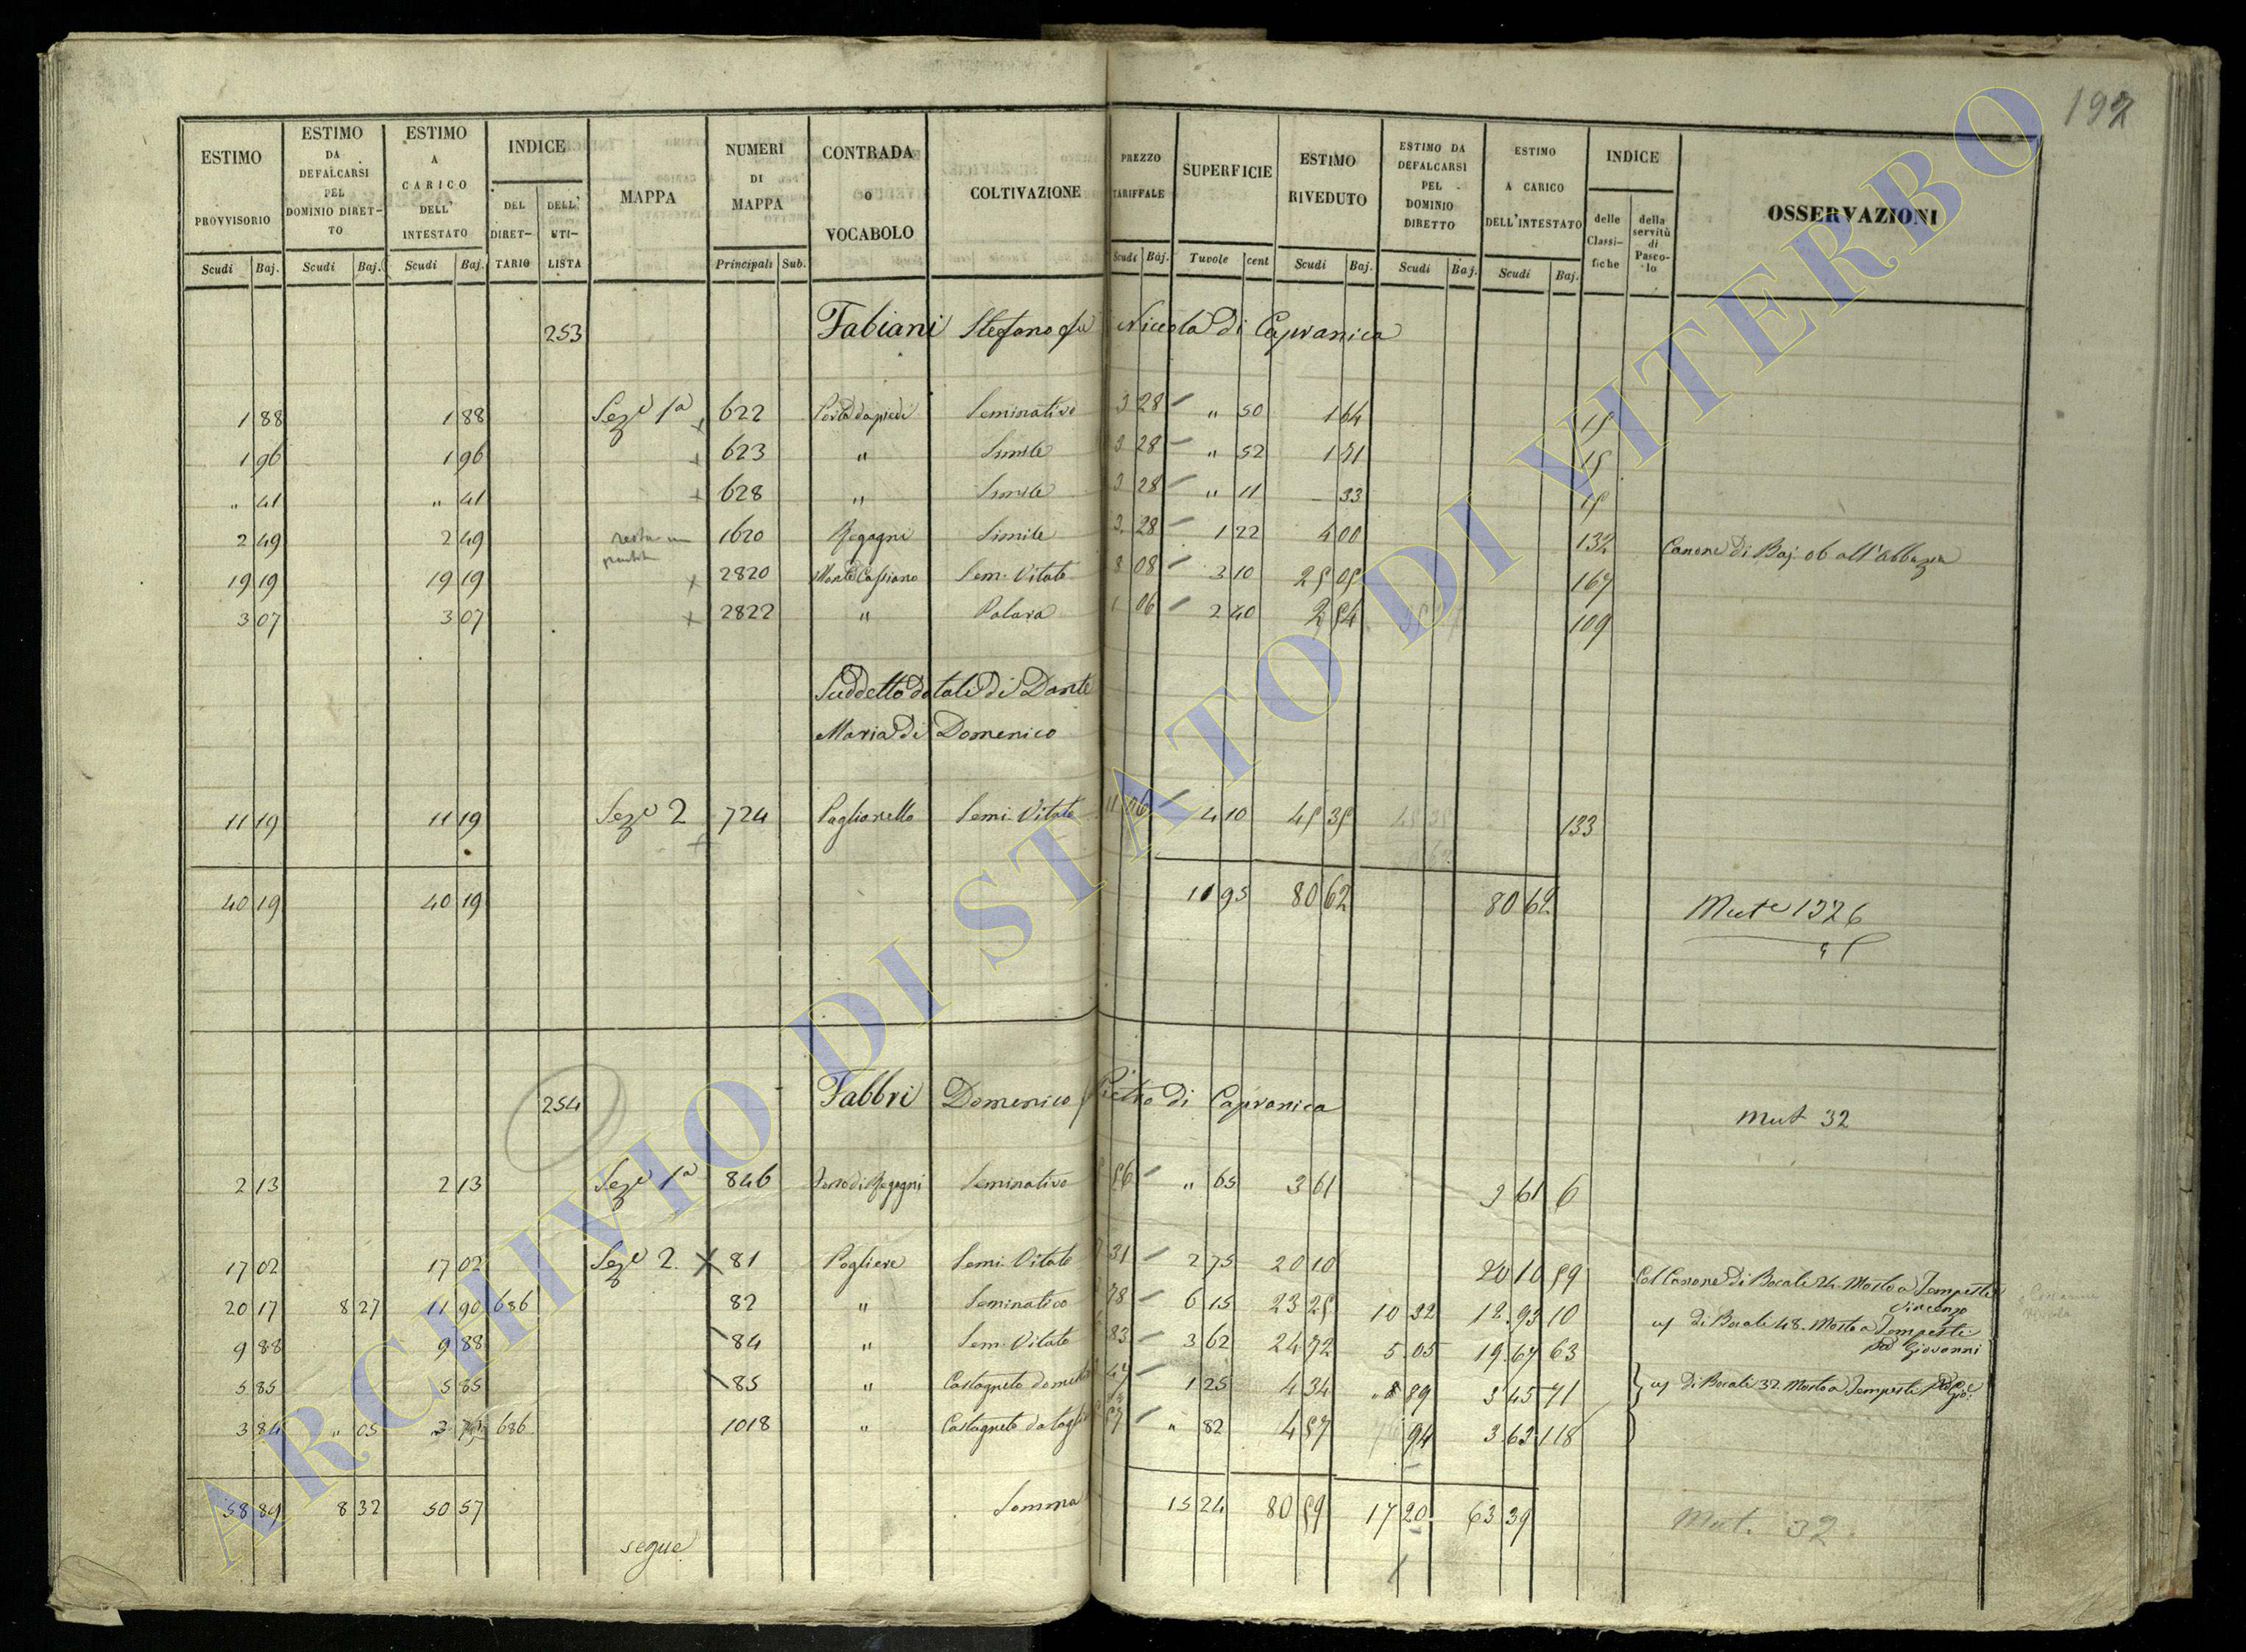 192
ESTIMO PROVVISORIO Scudi Baj.
ESTIMO DA DEFALCARSI PEL DOMINIO DIRET- TO Scudi Baj.
ESTIMO A CARICO DELL' INTESTATO Scudi Baj.
INDICE DEL DIRET- TARIO DELL' UTI- LISTA
MAPPA
NUMERI DI MAPPA Principali Sub.
CONTRADA o VOCABOLO
COLTIVAZIONE
PREZZO TARIFFALE Scudi Baj.
SUPERFICIE Tavole cent
ESTIMO RIVEDUTO Scudi Baj.
ESTIMO DA DEFALCARSI PEL DOMINIO DIRETTO Scudi Baj.
ESTIMO A CARICO DELL'INTESTATO Scudi Baj.
INDICE delle Classi- fiche della servitù di Pasco- lo
OSSERVAZIONI
253 Fabiani Stefano qm Niccola Di Capranica
1 88 1 88 Seze 1a 622 Seminativo 3 28 " 50 1 64 15
1 96 1 96 623 " Simile 3 28 " 52 1 71 15
" 41 " 41 628 " Simile 3 28 " 11 33 15
2 49 2 49 resta in partita 1620 Regagni Simile 3 28 1 22 4 00 132 Canone di Baj. 06 all'Abbazia
19 19 19 19 2820 Monte Casiano Sem. Vitato 8 08 3 10 25 05 167
3 07 3 07 2822 " Palara 1 06 2 40 2 54 109
Suddetto dotale di Dante
Maria Di Domenico
11 19 11 19 Seze 2 724 Paglianello Semi. Vitato 11 06 4 10 45 35 133
40 19 40 19 11 95 80 62 80 62 Mute 1326
254 Fabbri Domenico Pietro Di Capranica
Mut 32
2 13 2 13 Seze 1a 846 Seminativo 5 56 " 65 3 61 3 61 6
17 02 17 02 Seze 2. 81 Pogliere Semi. Vitato 7 31 2 75 20 10 20 10 59 Col Canone Di Bocale 24. Mosto a Tempesti Vincenzo
20 17 8 27 11 90 686 82 " Seminativo 3 78 6 15 23 25 10 32 12.93 10 Di Bocale 48. Mosto a Tempesti Giovanni
9 88 9 88 84 " Sem. Vitato 6 83 3 62 24 72 5.05 19.67 63
5 85 5 85 85 " Castagneto domestico 3 47 1 25 4 34 " 89 3 45 71 Di Bocale 32. Mosto a Tempesti
3 84 " 05 686 1018 " Castagneto da taglio 5 57 " 82 4 57 94 3.63 118
58 89 8 32 50 57 Somma 15 24 80 59 17 20 63 39 Mut. 32
segue
ARCHIVIO DI STATO DI VITERBO